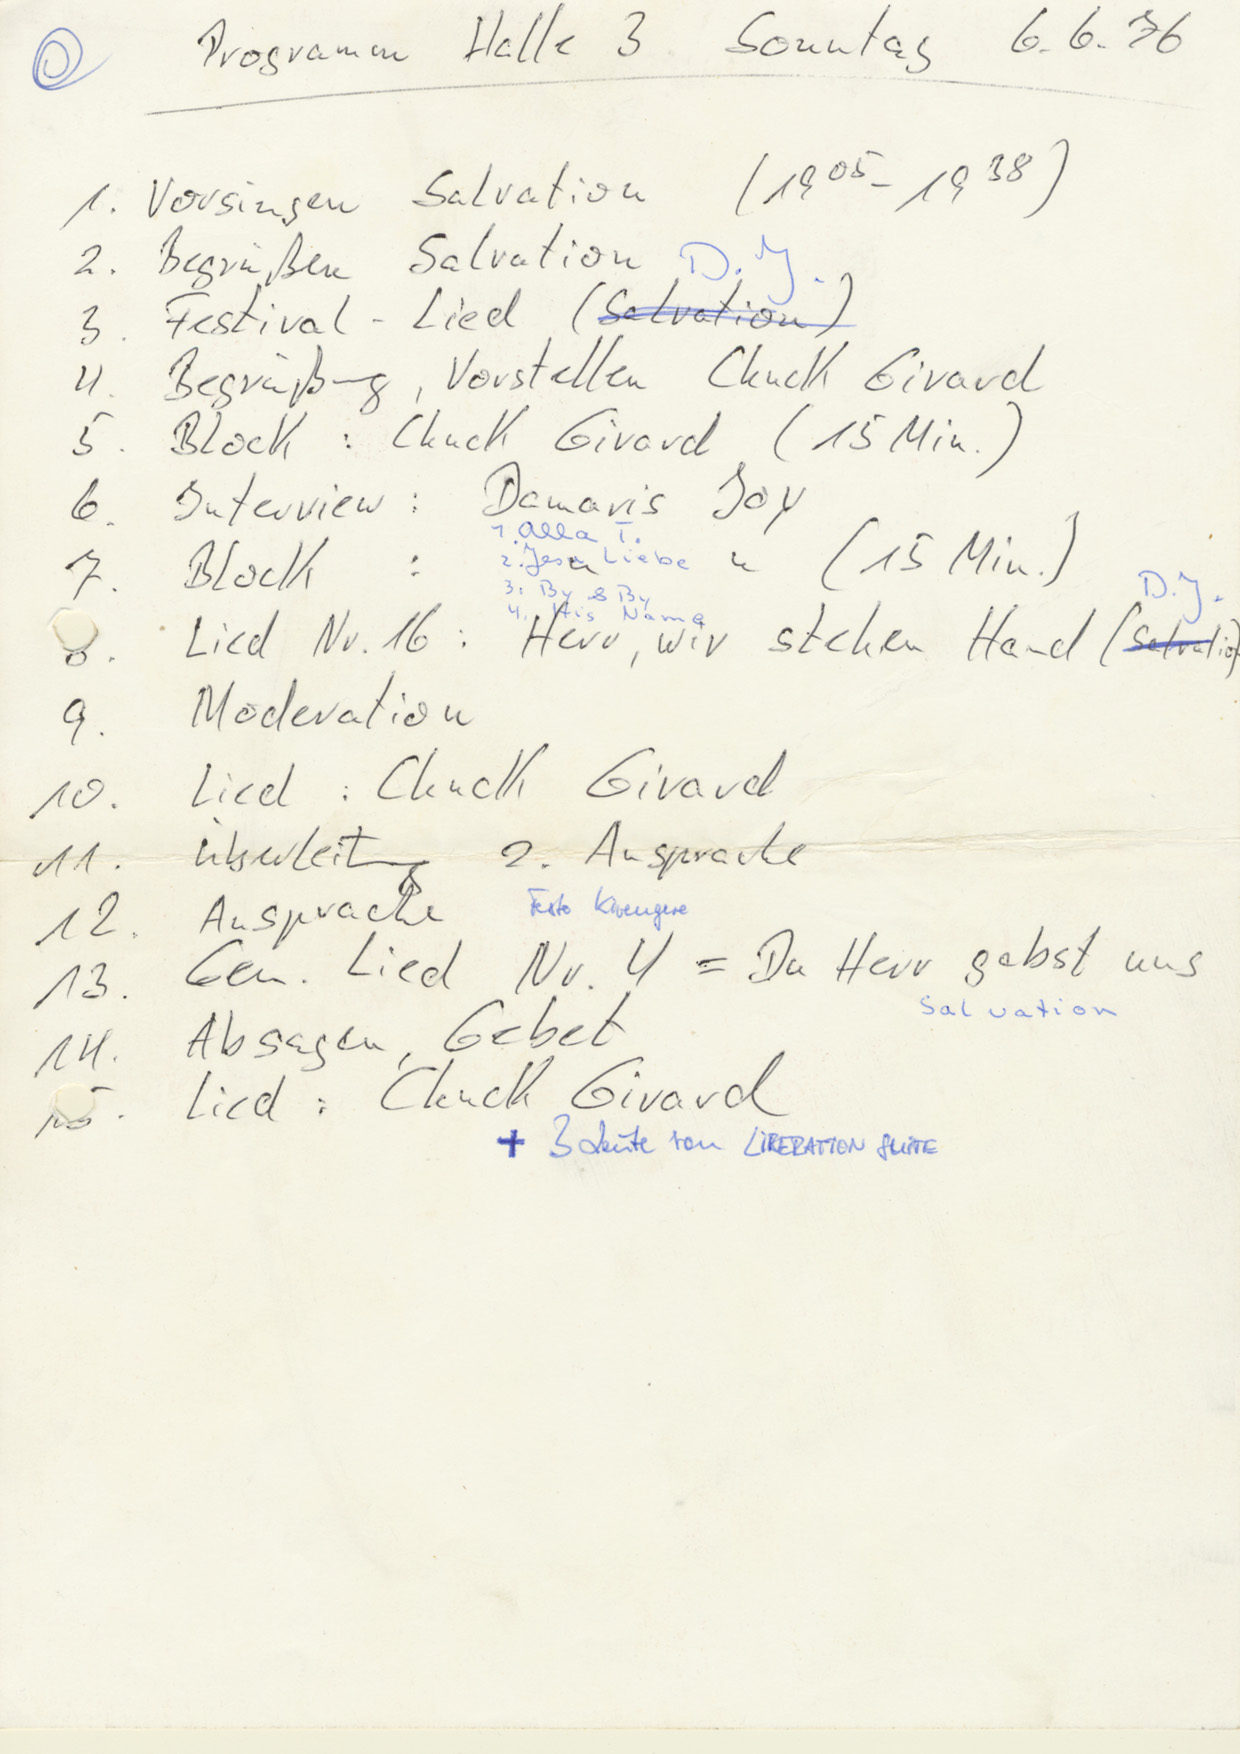 Programm Halle 3 Sonntag 6.6.76
1. Vorsingen Salvation (19⁰⁵- 19³⁸)
2. Begrüßen Salvation
D.J.
3. Festival - Lied (Salvation)
4. Begrüßung, Vorstellen Chuck Girard
5. Block : Chuck Girard (15 Min.)
6. Interview : Damaris Joy
1. Alla T.
2. Jesu Liebe
7. Block : " (15 Min.)
3. By & By
4. His Name
D.J.
8. Lied Nr. 16 : Herr, wir stehen Hand (Salvatio
9. Moderation
10. Lied : Chuck Girard
11. Überleitung z. Ansprache
12. Ansprache Festo Kivengere
13. Gem. Lied Nr. 4 = Du Herr gabst uns
Salvation
14. Absagen, Gebet
15. Lied : Chuck Girard
+ 3 Leute von LIBERATION SUITE